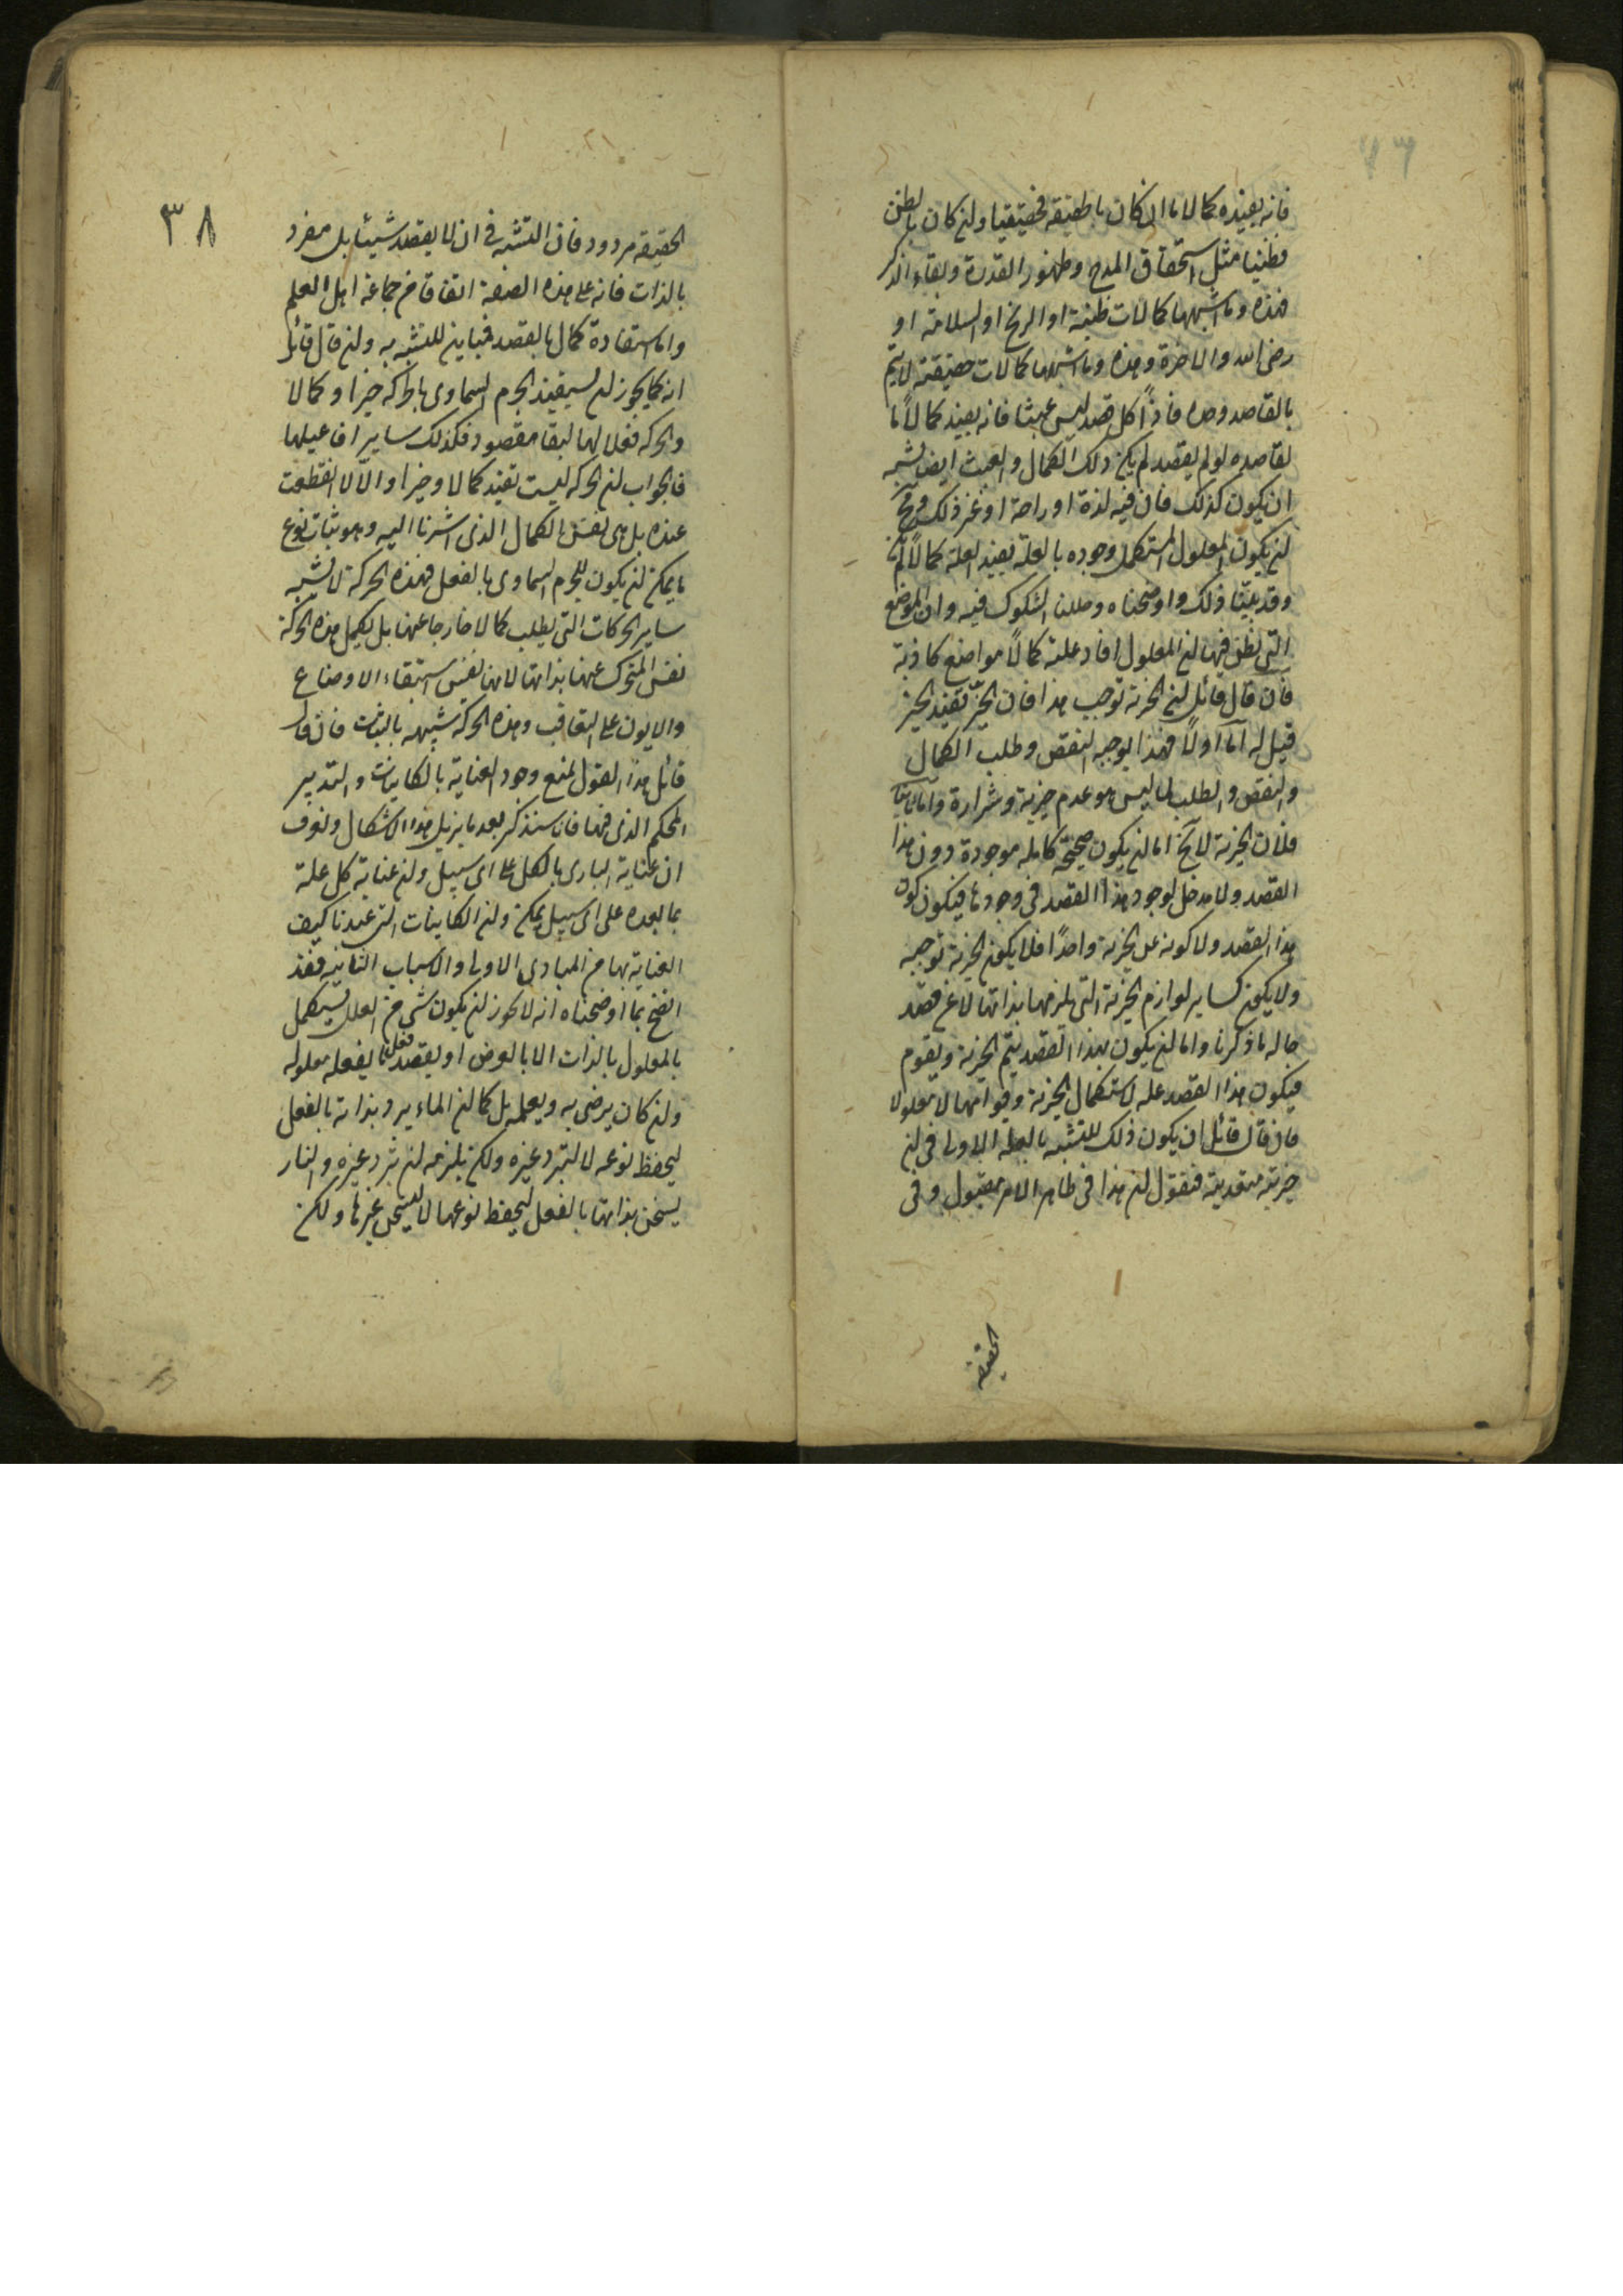 فانه يفيده كمالا ما ان كان بالحقيقة فحقيقيا وان كان بالظن
فظنيا مثل استحقاق المدح وظهور القدرة وبقاء الذكر
فهذه وما اشبهها كمالات ظنية او الربح او السلامة او
رضى الله والاخرة وهذه وما اشبهها كمالات حقيقية لا يتم
بالقاصد وحده فاذًا كل قصد ليس عبثا فانه يفيد كمالًا ما
لقاصده لو لم يقصد لم يكن ذلك الكمال والعبث ايضا يشبه
ان يكون كذلك فان فيه لذة او راحة او غير ذلك ومح
ان يكون المعلول المستكمل وجوده بالعلة يفيد العلة كمالًا لم يكن
وقد بيّنا ذلك واوضحناه وحللنا الشكوك فيه وان المواضع
التى يظن فيها ان المعلول افاد علته كمالًا مواضع كاذبة
فان قال قائل ان الخيرية توجب هذا فان الخيّر يفيد الخير
قيل له اما اولًا فهذا يوجب النقص وطلب الكمال
والنقص والطلب لما ليس هو عدم خيرية وشرارة واما ثانيا
فلان الخيرية لا يخ اما ان يكون صحيحة كاملة موجودة دون هذا
القصد ولا مدخل لوجود هذا القصد فى وجودها فيكون كون
هذا القصد ولا كونه عن الخيرية واحدًا فلا يكون الخيرية توجبه
ولا يكون كساير لوازم الخيرية التى تلزمها بذاتها لا عن قصد
حاله ما ذكرنا واما ان يكون بهذا القصد يتم الخيرية ويقوم
فيكون هذا القصد علة لاستكمال الخيرية وقوامها لا معلولا
فان قال قائل ان يكون ذلك للتشبه بالعلة الاولى فى ان
خيريته متعدية فنقول ان هذا فى ظاهر الامر مقبول وفى
الحقيقة
٣٨
الحقيقة مردود فان التشبه فى ان لا يقصد شيئا بل منفرد
بالذات فانه على هذه الصفة اتفاقا من جماعة اهل العلم
واما استفادة كمال بالقصد فمباين للتشبه به وان قال قائل
انه كما يجوز ان يستفيد الجرم السماوى بالحركة خيرا وكمالا
والحركة فعلا لها لبقا مقصود فكذلك ساير افاعيلها
فالجواب ان الحركة ليست تفيد كمالا وخيرا والّا لانقطعت
عنده بل هى نفس الكمال الذى اشرنا اليه وهو ثبات نوع
ما يمكن ان يكون للجرم السماوى بالفعل فهذه الحركة لا تشبه
ساير الحركات التى يطلب كمالا خارجا عنها بل يكمل هذه الحركة
نفس المتحرك عنها بذاتها لانها نفس استبقاء الاوضاع
والايون على التعاقب وهذه الحركة شبيهة بالثبات فان قال
قائل هذا القول يمنع وجود العناية بالكاينات والتدبير
المحكم الذى فيها فانا سنذكر بعد ما يزيل هذا الاشكال ونعرف
ان عناية البارى بالكل على اى سبيل وان عناية كل علة
بما بعده على اى سبيل يمكن وان الكاينات التى عندنا كيف
العناية بها من المبادى الاولى والاسباب الثانية فقد
اتضح بما اوضحناه انه لا يجوز ان يكون شى من العلل يستكمل
بالمعلول بالذات الا بالعرض او يقصد فعلا يفعله معلوله
وان كان يرضى به ويعلمه بل كما ان الماء يبرد بذاته بالفعل
ليحفظ نوعه لا ليبرد غيره ولكن يلزمه ان يبرد غيره والنار
يسخن بذاتها بالفعل ليحفظ نوعها لا ليسخن غيرها ولكن